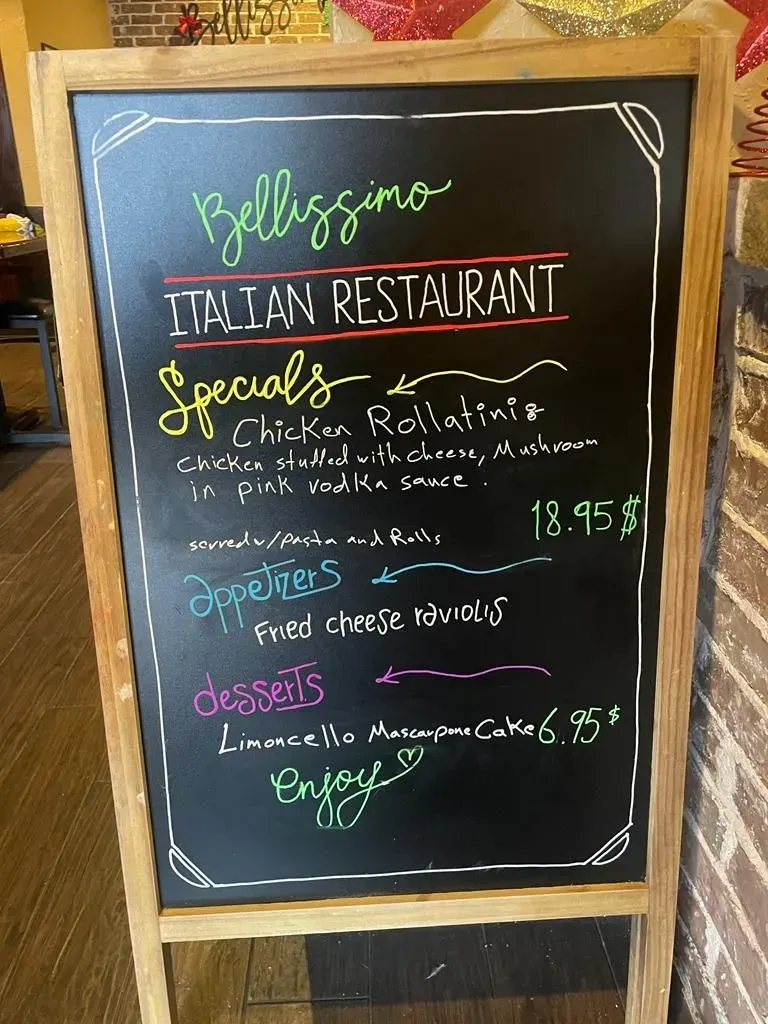 Bellissimo
Bellissimo
ITALIAN RESTAURANT
Specials
Chicken Rollatini:
Chicken stuffed with cheese, Mushroom
in pink vodka sauce.
18.95$
served w/pasta and Rolls
appetizers
Fried cheese raviolis
desserts
Limoncello Mascarpone Cake 6.95$
enjoy